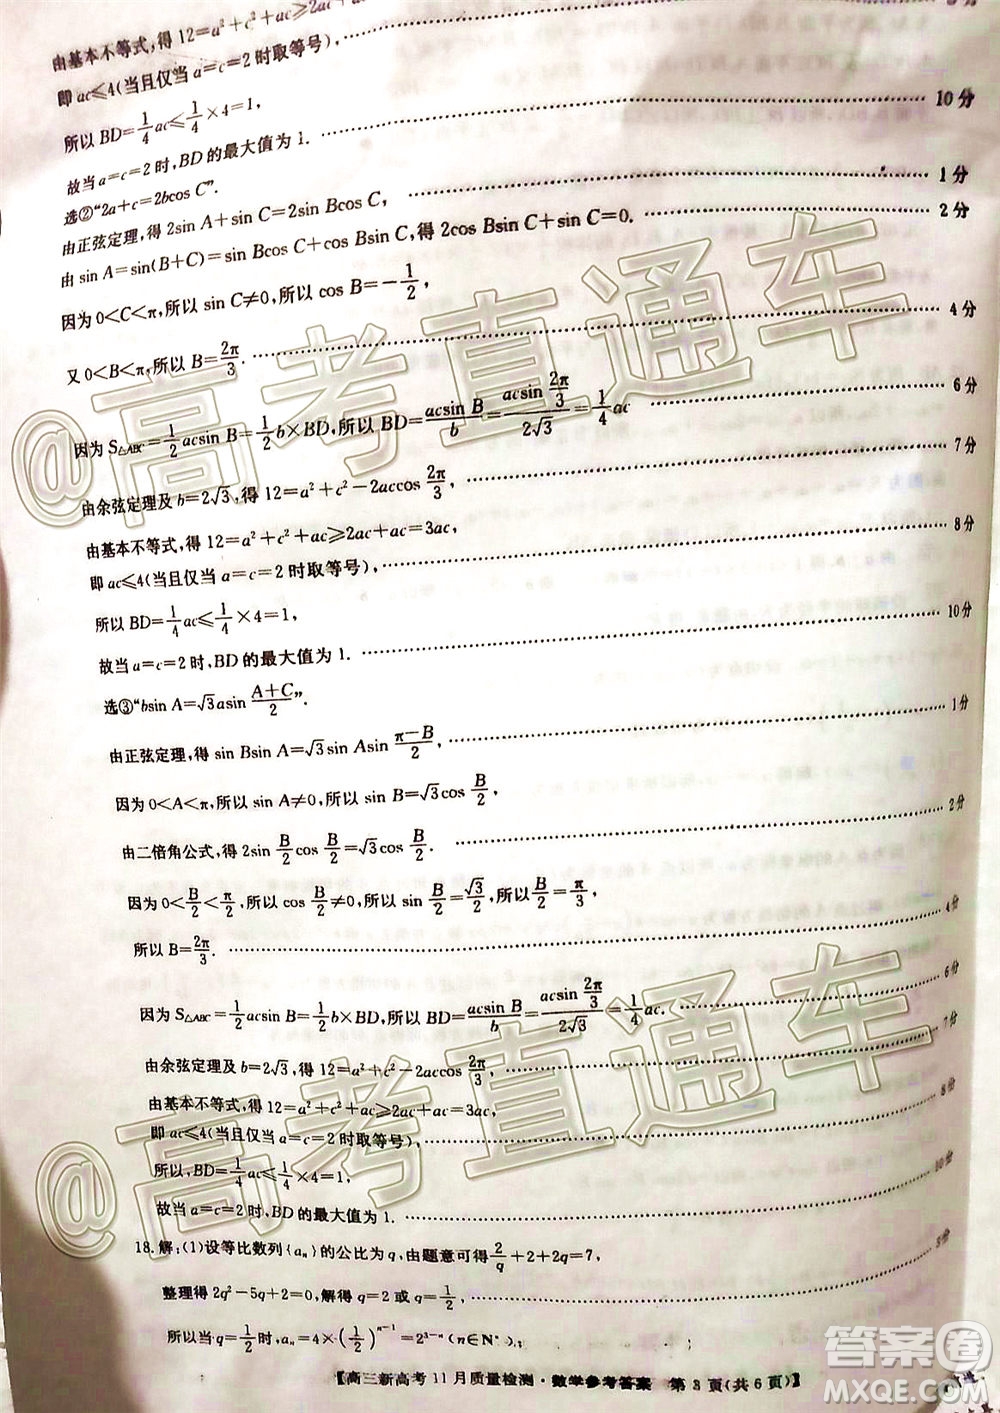 由基本不等式,得 12=a²+c²+ac≥2ac+ac=3ac,
即 ac≤4(当且仅当 a=c=2 时取等号),
所以 BD=1/4 ac≤1/4×4=1,
故当 a=c=2 时,BD 的最大值为 1. …… 10 分
选②“2a+c=2bcos C”.
由正弦定理,得 2sin A+sin C=2sin Bcos C, …… 1 分
由 sin A=sin(B+C)=sin Bcos C+cos Bsin C,得 2cos Bsin C+sin C=0. …… 2 分
因为 0<C<π,所以 sin C≠0,所以 cos B=-1/2,
又 0<B<π,所以 B=2π/3. …… 4 分
因为 S△ABC=1/2 acsin B=1/2 b×BD,所以 BD=acsin B/b=acsin 2π/3/2√3=1/4 ac …… 6 分
由余弦定理及 b=2√3,得 12=a²+c²-2accos 2π/3, …… 7 分
由基本不等式,得 12=a²+c²+ac≥2ac+ac=3ac,
即 ac≤4(当且仅当 a=c=2 时取等号), …… 8 分
所以 BD=1/4 ac≤1/4×4=1,
故当 a=c=2 时,BD 的最大值为 1. …… 10 分
选③“bsin A=√3asin (A+C)/2”.
由正弦定理,得 sin Bsin A=√3sin Asin (π-B)/2, …… 1 分
因为 0<A<π,所以 sin A≠0,所以 sin B=√3cos B/2,
由二倍角公式,得 2sin B/2 cos B/2=√3cos B/2. …… 2 分
因为 0<B/2<π/2,所以 cos B/2≠0,所以 sin B/2=√3/2,所以 B/2=π/3,
所以 B=2π/3. …… 4 分
因为 S△ABC=1/2 acsin B=1/2 b×BD,所以 BD=acsin B/b=acsin 2π/3/2√3=1/4 ac. …… 6 分
由余弦定理及 b=2√3,得 12=a²+c²-2accos 2π/3, …… 7 分
由基本不等式,得 12=a²+c²+ac≥2ac+ac=3ac,
即 ac≤4(当且仅当 a=c=2 时取等号), …… 8 分
所以,BD=1/4 ac≤1/4×4=1,
故当 a=c=2 时,BD 的最大值为 1. …… 10 分
18.解:(1)设等比数列{aₙ}的公比为 q,由题意可得 2/q+2+2q=7, …… 3 分
整理得 2q²-5q+2=0,解得 q=2 或 q=1/2,
所以当 q=1/2 时,aₙ=4×(1/2)ⁿ⁻¹=2³⁻ⁿ(n∈N*);
【高三新高考 11 月质量检测·数学参考答案 第 3 页(共 6 页)】
@高考直通车
@高考直通车
答案圈
MXQE.COM